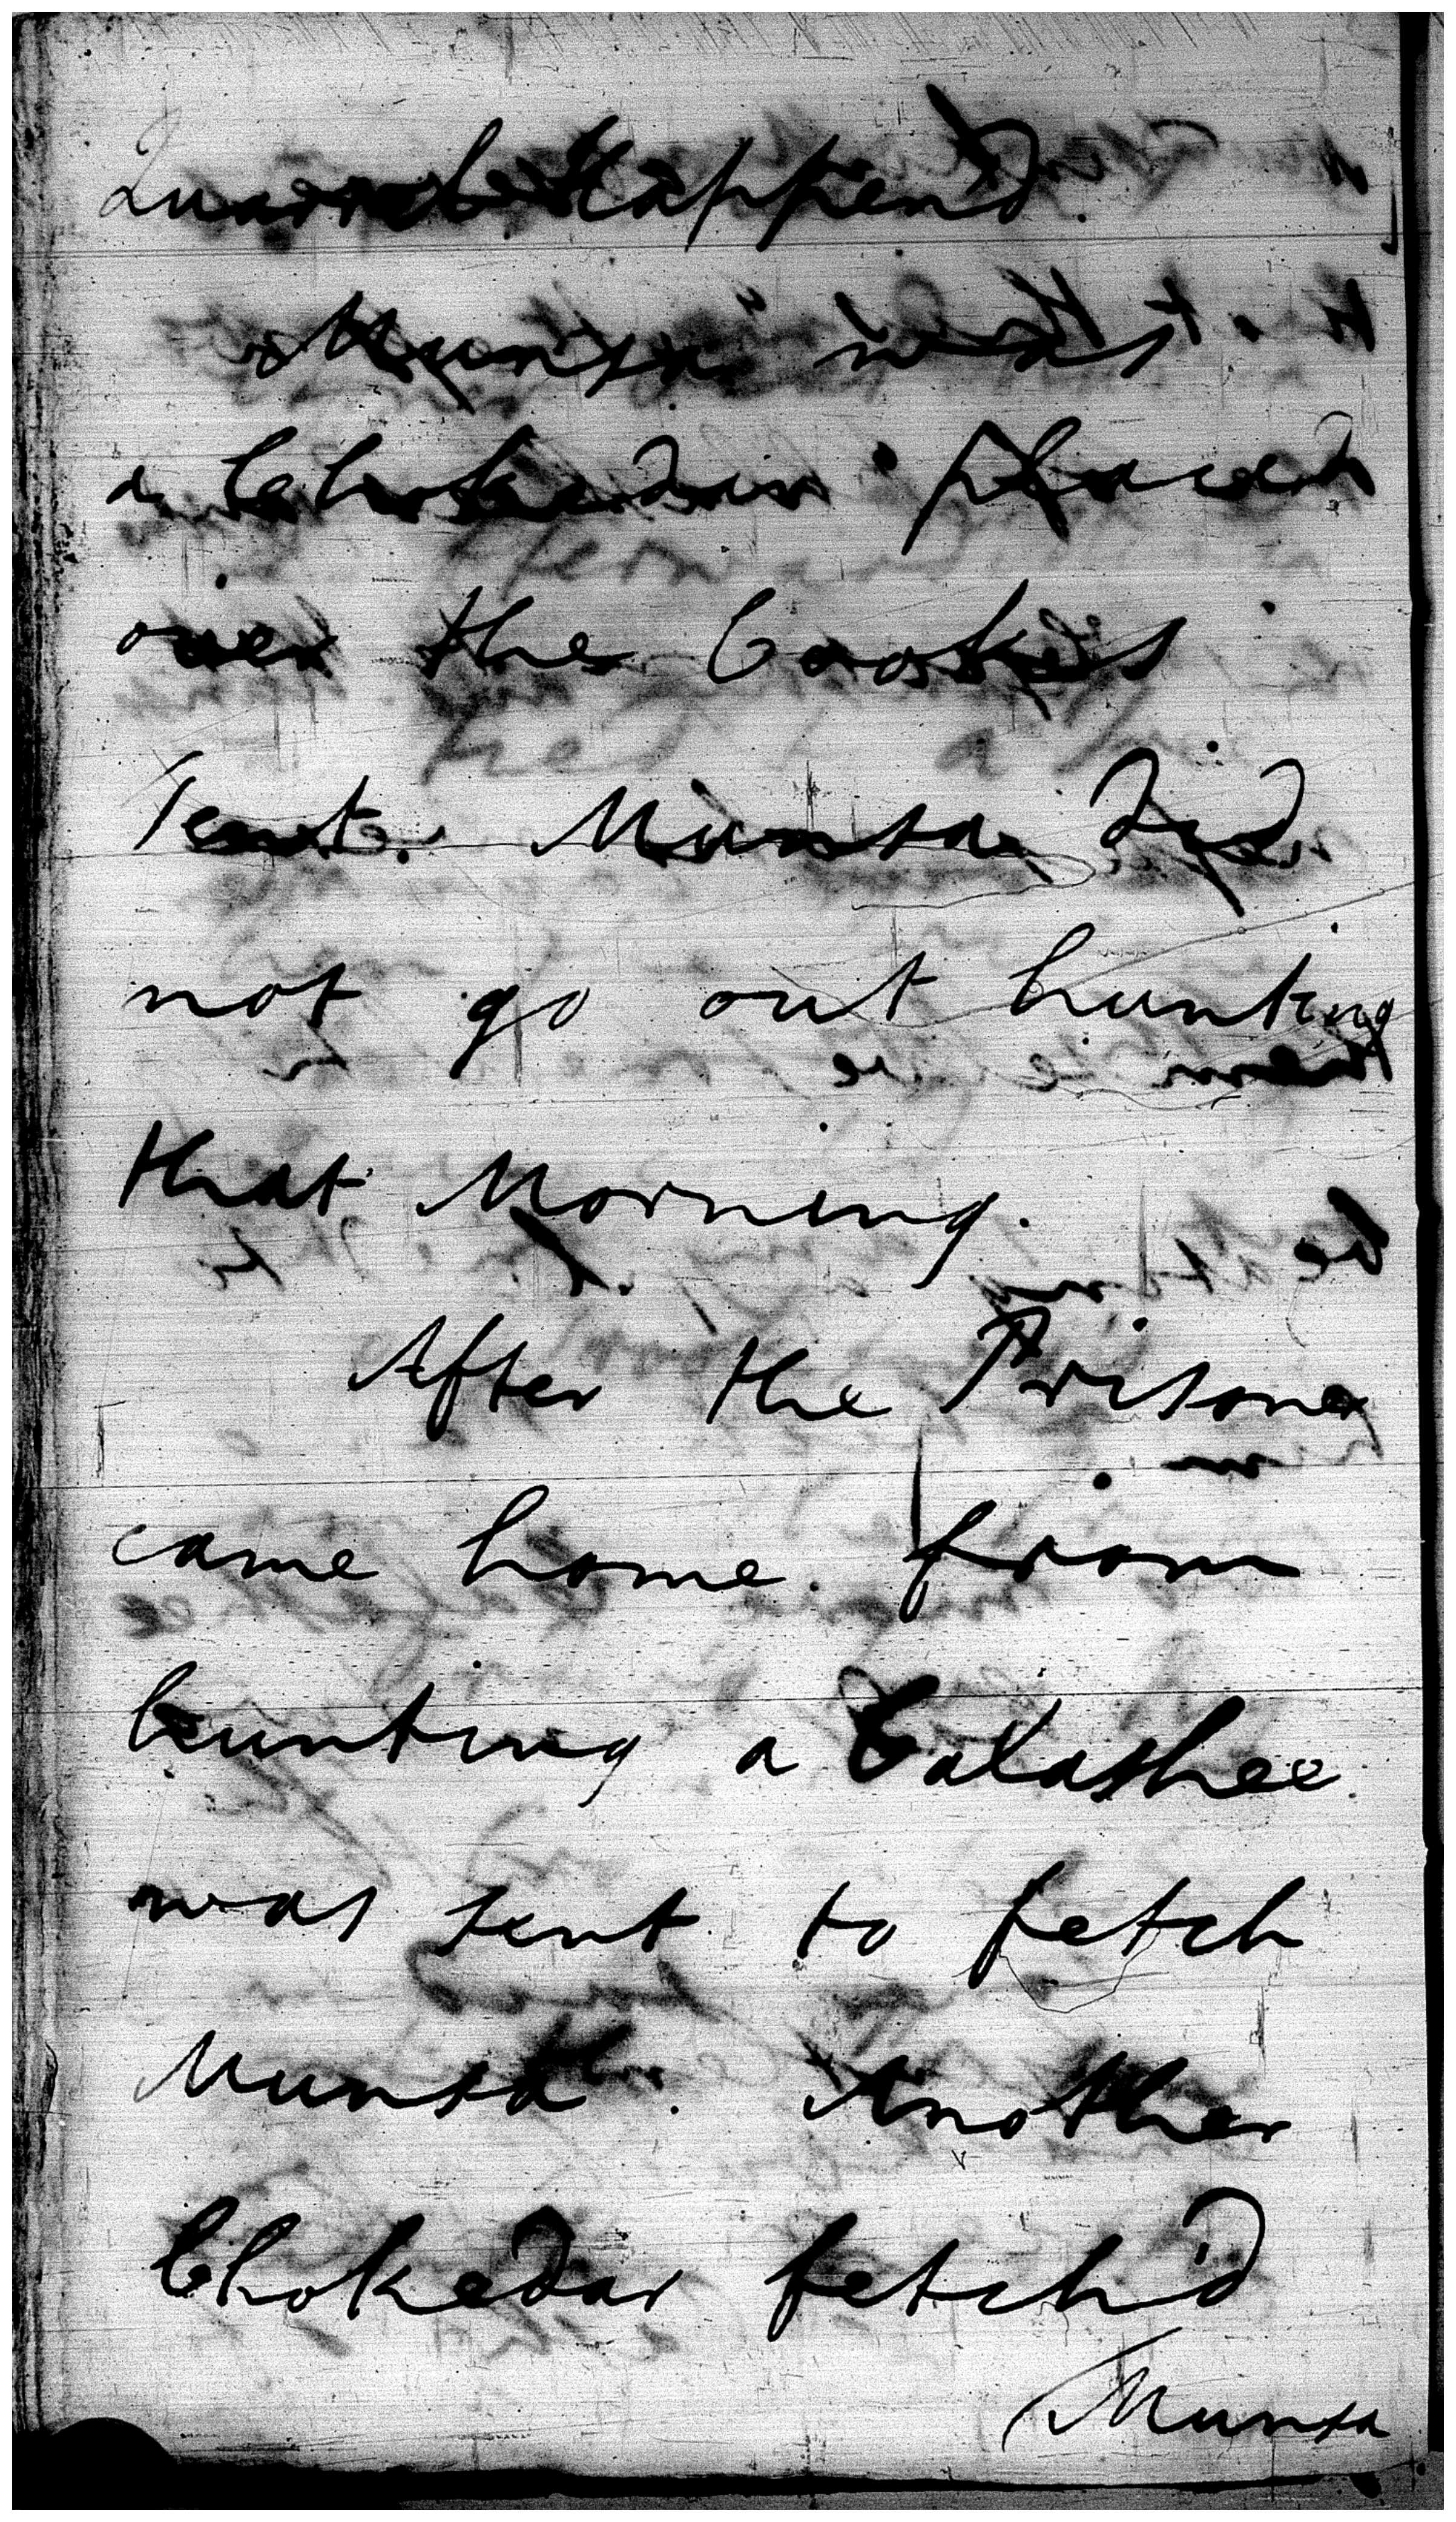 Quarrel Happend.
Munsa was
a Chokedar placed
over the Cookes
Tent. Munsa did
not go out hunting
that Morning.
After the Prisoner
came home from
hunting a Calashee
was sent to fetch
Munsa. Another
Chokedar fetch'd
Munsa